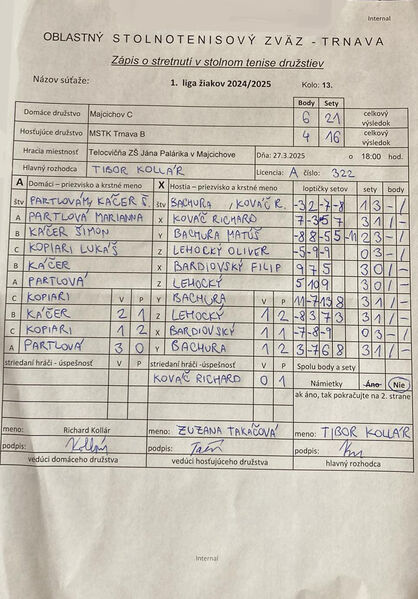 Internal
OBLASTNÝ STOLNOTENISOVÝ ZVÄZ - TRNAVA
Zápis o stretnutí v stolnom tenise družstiev
Názov súťaže: 1. liga žiakov 2024/2025 Kolo: 13.
Body Sety
Domáce družstvo Majcichov C 6 21 celkový výsledok
Hosťujúce družstvo MSTK Trnava B 4 16 celkový výsledok
Hracia miestnosť Telocvičňa ZŠ Jána Palárika v Majcichove Dňa: 27.3.2025 o 18:00 hod.
Hlavný rozhodca TIBOR KOLLÁR Licencia: A číslo: 322
A Domáci – priezvisko a krstné meno X Hostia – priezvisko a krstné meno loptičky setov sety body
štv PARTLOVÁ M, KÁČER Š. štv BACHURA, KOVÁČ R. -3 2 -7 -8 1 3 - / 
A PARTLOVÁ MARIANNA X KOVÁČ RICHARD 7 -3 5 7 3 1 / -
B KÁČER ŠIMON Y BACHURA MATÚŠ -8 8 -5 5 -11 2 3 - /
C KOPIARI LUKÁŠ Z LEHOCKÝ OLIVER -5 -9 -9 0 3 - /
B KÁČER X BARDIOVSKÝ FILIP 9 7 5 3 0 / -
A PARTLOVÁ Z LEHOCKÝ 5 10 9 3 0 / -
C KOPIARI V P Y BACHURA V P 11 -7 13 8 3 1 / -
B KÁČER 2 1 Z LEHOCKÝ 1 2 -8 3 7 3 3 1 / -
C KOPIARI 1 2 X BARDIOVSKÝ 1 1 -7 -8 -9 0 3 - /
A PARTLOVÁ 3 0 Y BACHURA 1 2 3 -7 6 8 3 1 / -
striedaní hráči - úspešnosť V P striedaní hráči - úspešnosť V P Spolu body a sety
KOVÁČ RICHARD 0 1 Námietky Áno Nie
ak áno, tak pokračujte na 2. strane
meno: Richard Kollár meno: ZUZANA TAKÁČOVÁ meno: TIBOR KOLLÁR
podpis: podpis: podpis:
vedúci domáceho družstva vedúci hosťujúceho družstva hlavný rozhodca
Internal